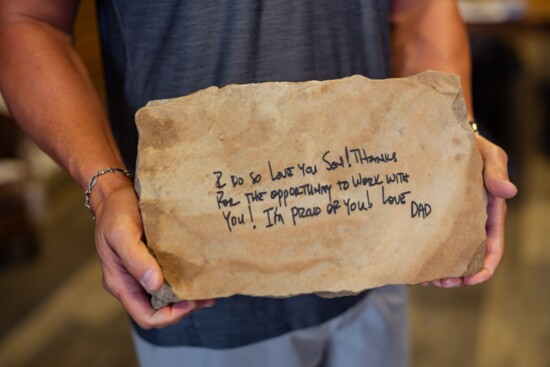 I DO SO LOVE YOU SON! THANKS
FOR THE OPPORTUNITY TO WORK WITH
YOU! I'M PROUD OF YOU! LOVE
DAD